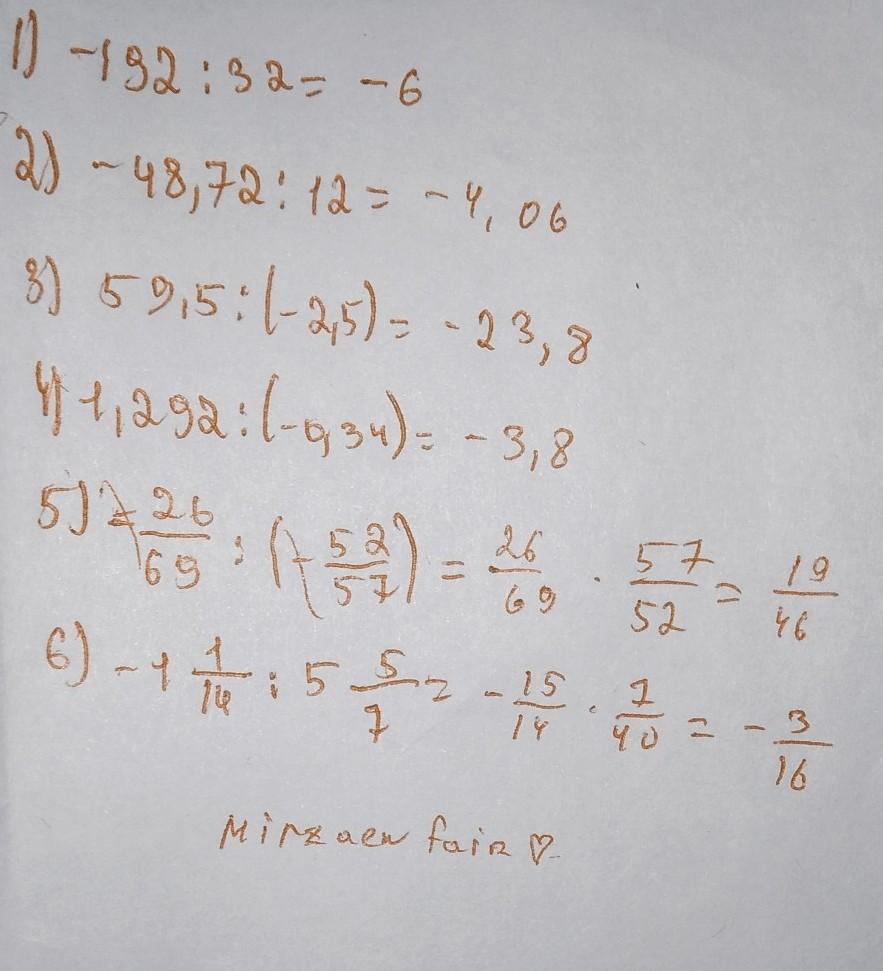 1) -192 : 32 = -6
2) -48,72 : 12 = -4,06
3) 59,5 : (-2,5) = -23,8
4) 1,292 : (-0,34) = -3,8
5) -26/69 : (-52/57) = 26/69 · 57/52 = 19/46
6) -1 1/14 : 5 5/7 = -15/14 · 7/40 = -3/16
♡